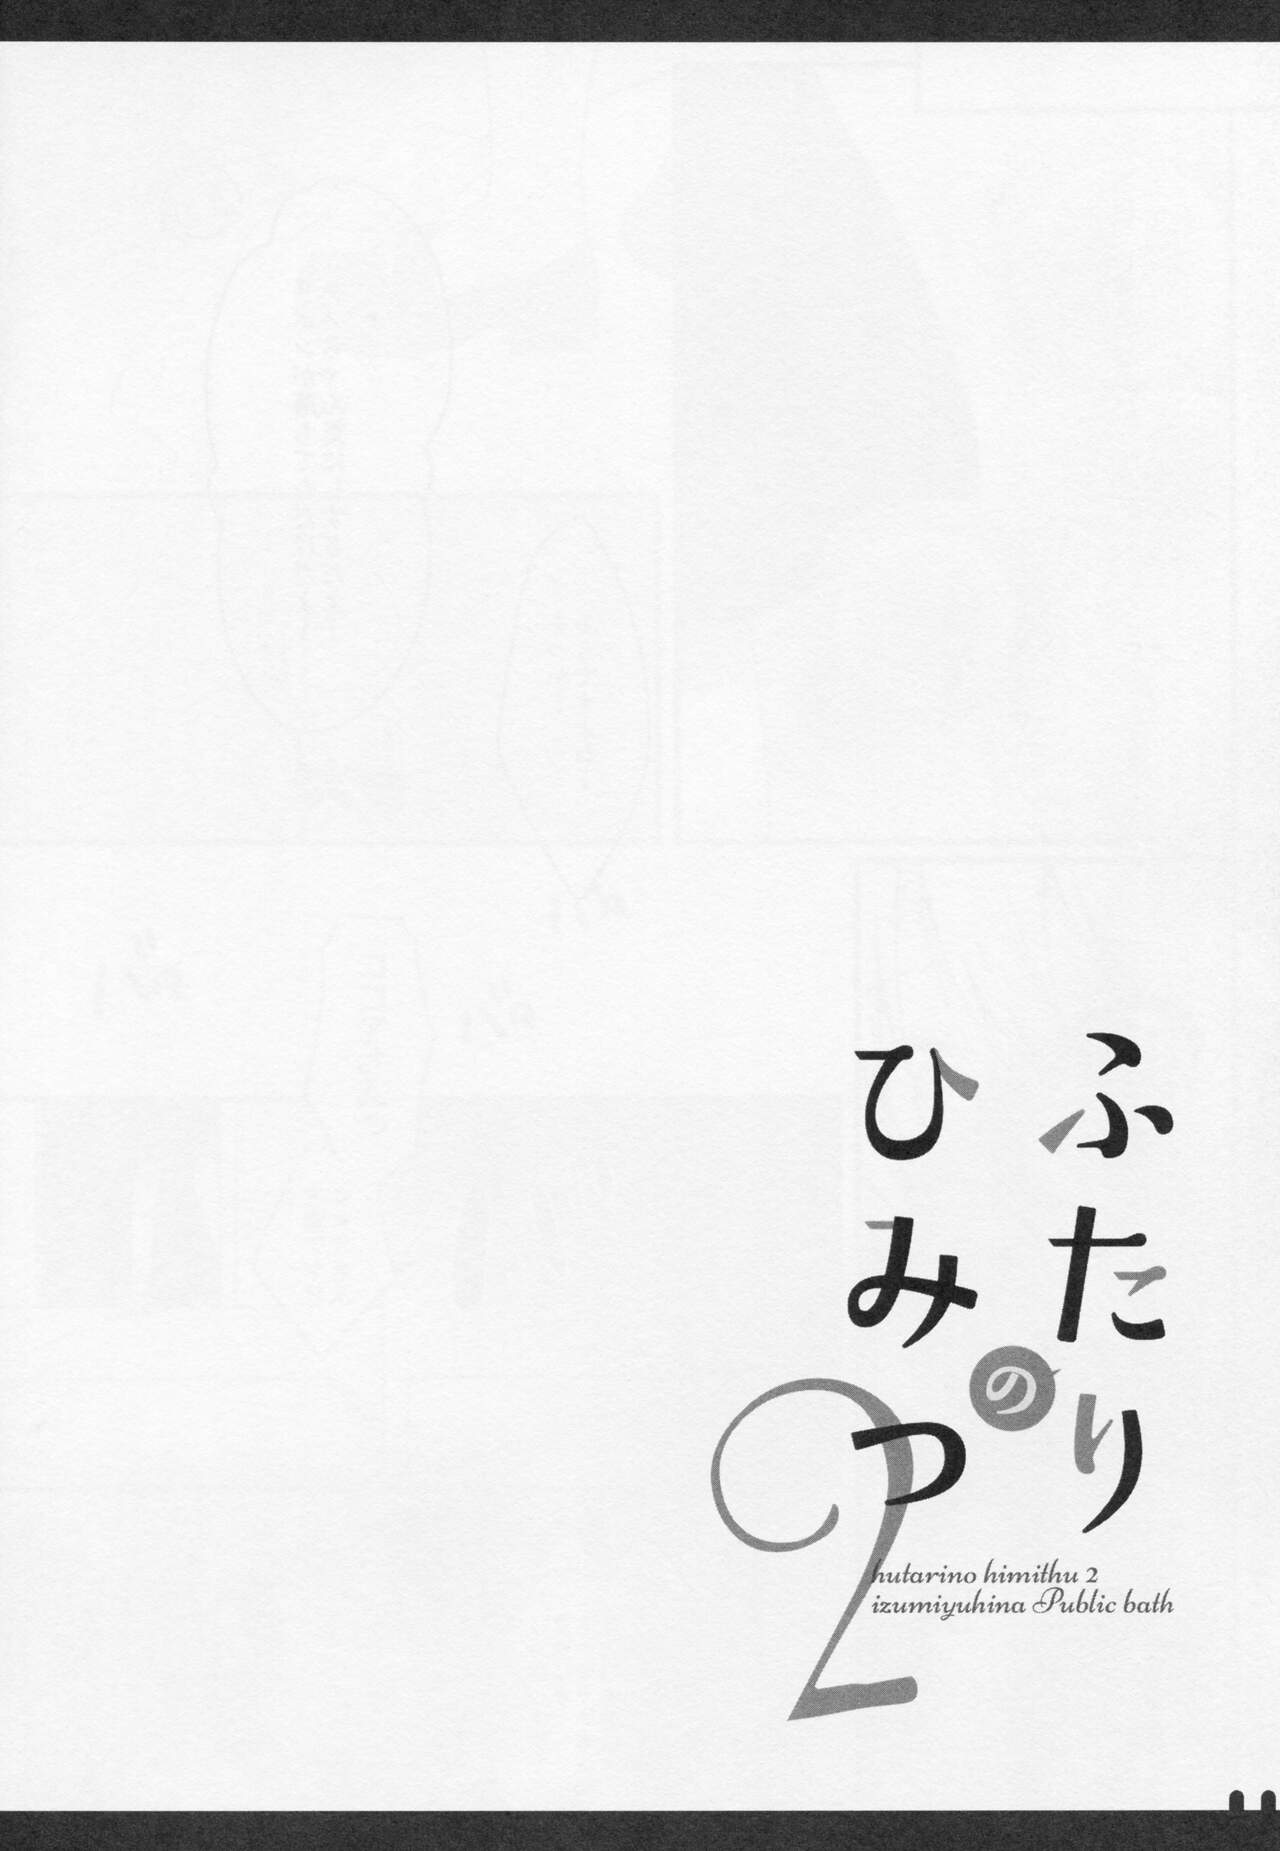 ふたりの
ひみつ
2
hutarino himithu 2
izumiyuhina Public bath